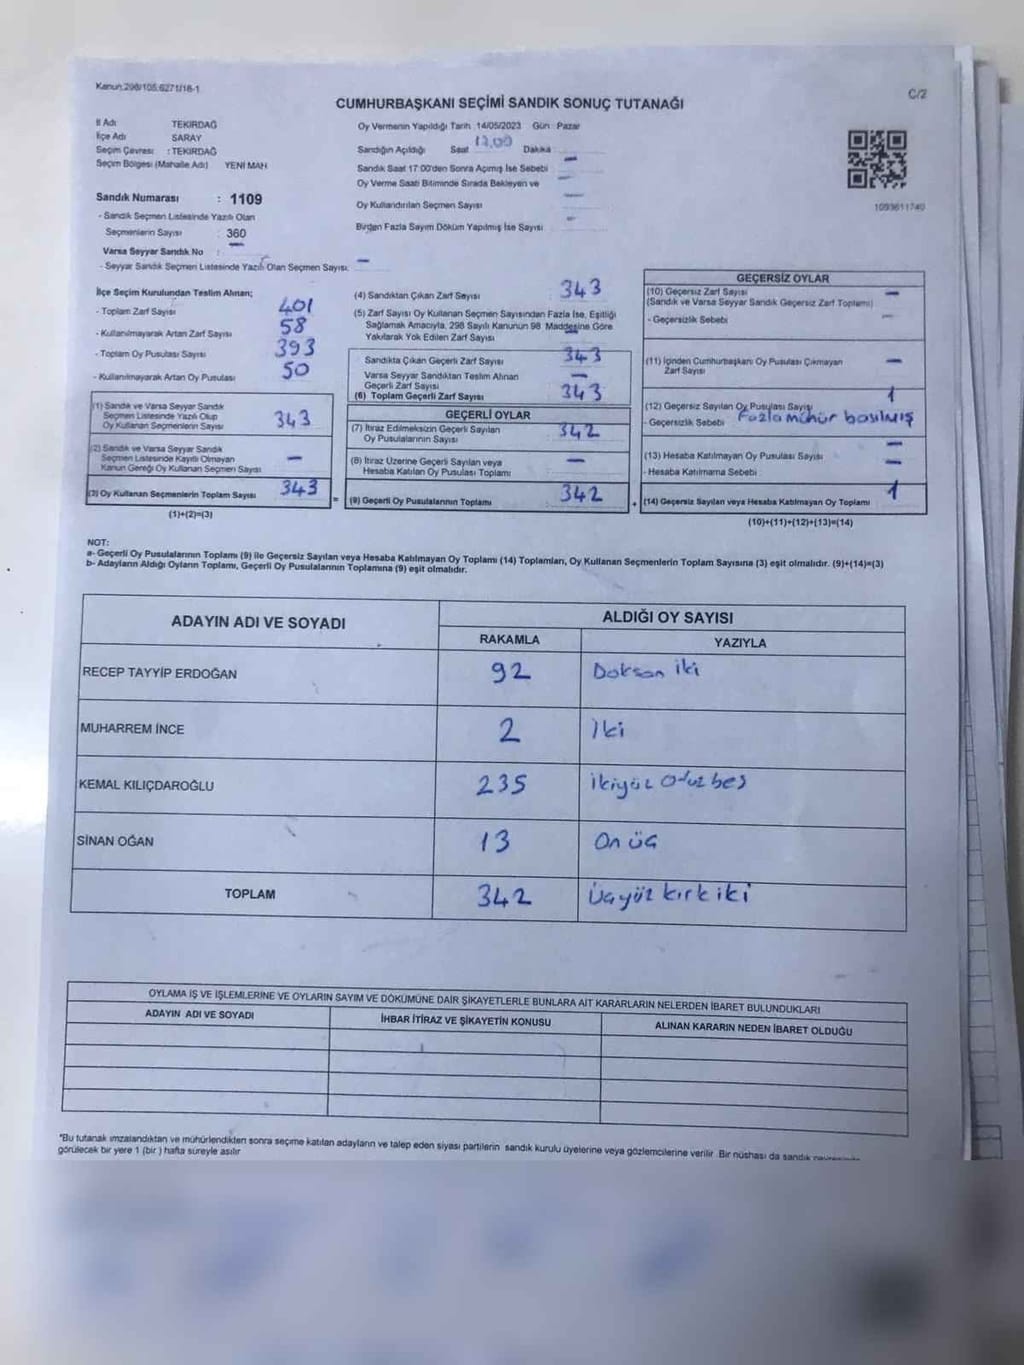 Kanun:298/105,6271/18-1
C/2
CUMHURBAŞKANI SEÇİMİ SANDIK SONUÇ TUTANAĞI
İl Adı TEKİRDAĞ
İlçe Adı SARAY
Seçim Çevresi : TEKİRDAĞ
Seçim Bölgesi (Mahalle Adı) YENİ MAH
Sandık Numarası : 1109
- Sandık Seçmen Listesinde Yazılı Olan
Seçmenlerin Sayısı : 360
Varsa Seyyar Sandık No : –
- Seyyar Sandık Seçmen Listesinde Yazılı Olan Seçmen Sayısı: –
Oy Vermenin Yapıldığı Tarih 14/05/2023 Gün : Pazar
Sandığın Açıldığı Saat 17,00 Dakika
Sandık Saat 17:00'den Sonra Açımış İse Sebebi –
Oy Verme Saati Bitiminde Sırada Bekleyen ve –
Oy Kullandırılan Seçmen Sayısı –
Birden Fazla Sayım Döküm Yapılmış İse Sayısı –
1093611740
İlçe Seçim Kurulundan Teslim Alınan;
- Toplam Zarf Sayısı 401
- Kullanılmayarak Artan Zarf Sayısı 58
- Toplam Oy Pusulası Sayısı 393
- Kullanılmayarak Artan Oy Pusulası 50
(1) Sandık ve Varsa Seyyar Sandık
Seçmen Listesinde Yazılı Olup
Oy Kullanan Seçmenlerin Sayısı 343
(2) Sandık ve Varsa Seyyar Sandık
Seçmen Listesinde Kayıtlı Olmayan
Kanun Gereği Oy Kullanan Seçmen Sayısı –
(3) Oy Kullanan Seçmenlerin Toplam Sayısı 343
(1)+(2)=(3)
(4) Sandıktan Çıkan Zarf Sayısı 343
(5) Zarf Sayısı Oy Kullanan Seçmen Sayısından Fazla İse, Eşitliği
Sağlamak Amacıyla, 298 Sayılı Kanunun 98. Maddesine Göre
Yakılarak Yok Edilen Zarf Sayısı –
Sandıkta Çıkan Geçerli Zarf Sayısı 343
Varsa Seyyar Sandıktan Teslim Alınan
Geçerli Zarf Sayısı –
(6) Toplam Geçerli Zarf Sayısı 343
GEÇERLİ OYLAR
(7) İtiraz Edilmeksizin Geçerli Sayılan
Oy Pusulalarının Sayısı 342
(8) İtiraz Üzerine Geçerli Sayılan veya
Hesaba Katılan Oy Pusulası Toplamı –
= (9) Geçerli Oy Pusulalarının Toplamı 342
GEÇERSİZ OYLAR
(10) Geçersiz Zarf Sayısı –
(Sandık ve Varsa Seyyar Sandık Geçersiz Zarf Toplamı)
- Geçersizlik Sebebi –
(11) İçinden Cumhurbaşkanı Oy Pusulası Çıkmayan
Zarf Sayısı –
(12) Geçersiz Sayılan Oy Pusulası Sayısı 1
- Geçersizlik Sebebi Fazla mühür basılmış
(13) Hesaba Katılmayan Oy Pusulası Sayısı –
- Hesaba Katılmama Sebebi –
+ (14) Geçersiz Sayılan veya Hesaba Katılmayan Oy Toplamı 1
(10)+(11)+(12)+(13)=(14)
NOT:
a- Geçerli Oy Pusulalarının Toplamı (9) ile Geçersiz Sayılan veya Hesaba Katılmayan Oy Toplamı (14) Toplamları, Oy Kullanan Seçmenlerin Toplam Sayısına (3) eşit olmalıdır. (9)+(14)=(3)
b- Adayların Aldığı Oyların Toplamı, Geçerli Oy Pusulalarının Toplamına (9) eşit olmalıdır.
ADAYIN ADI VE SOYADI ALDIĞI OY SAYISI
RAKAMLA YAZIYLA
RECEP TAYYİP ERDOĞAN 92 Doksan iki
MUHARREM İNCE 2 İki
KEMAL KILIÇDAROĞLU 235 İkiyüz otuz beş
SİNAN OĞAN 13 On üç
TOPLAM 342 Üçyüz kırk iki
OYLAMA İŞ VE İŞLEMLERİNE VE OYLARIN SAYIM VE DÖKÜMÜNE DAİR ŞİKAYETLERLE BUNLARA AİT KARARLARIN NELERDEN İBARET BULUNDUKLARI
ADAYIN ADI VE SOYADI İHBAR İTİRAZ VE ŞİKAYETİN KONUSU ALINAN KARARIN NEDEN İBARET OLDUĞU
*Bu tutanak imzalandıktan ve mühürlendikten sonra seçime katılan adayların ve talep eden siyasi partilerin sandık kurulu üyelerine veya gözlemcilerine verilir. Bir nüshası da sandık
görülecek bir yere 1 (bir ) hafta süreyle asılır